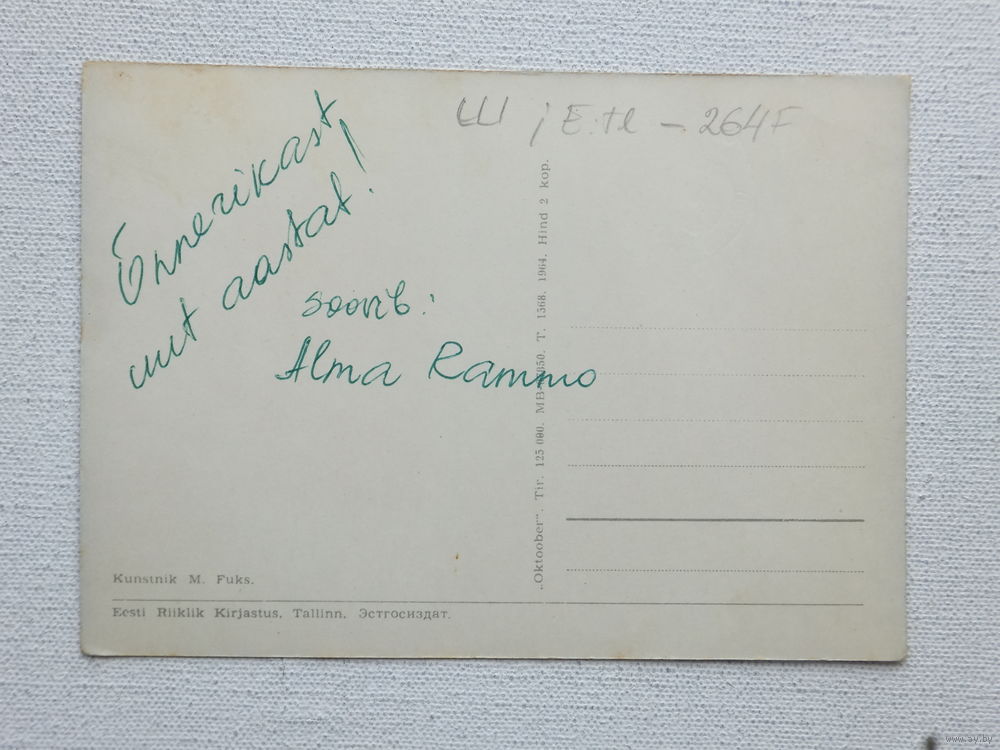 Õnnerikast
uut aastat!
soovib:
Alma Rammo
Ш ; E.tl – 264F
Kunstnik M. Fuks.
Eesti Riiklik Kirjastus, Tallinn. Эстгосиздат.
„Oktoober“. Tir. 125 000. MB- 350. T. 1568. 1964. Hind 2 kop.
www.ay.by